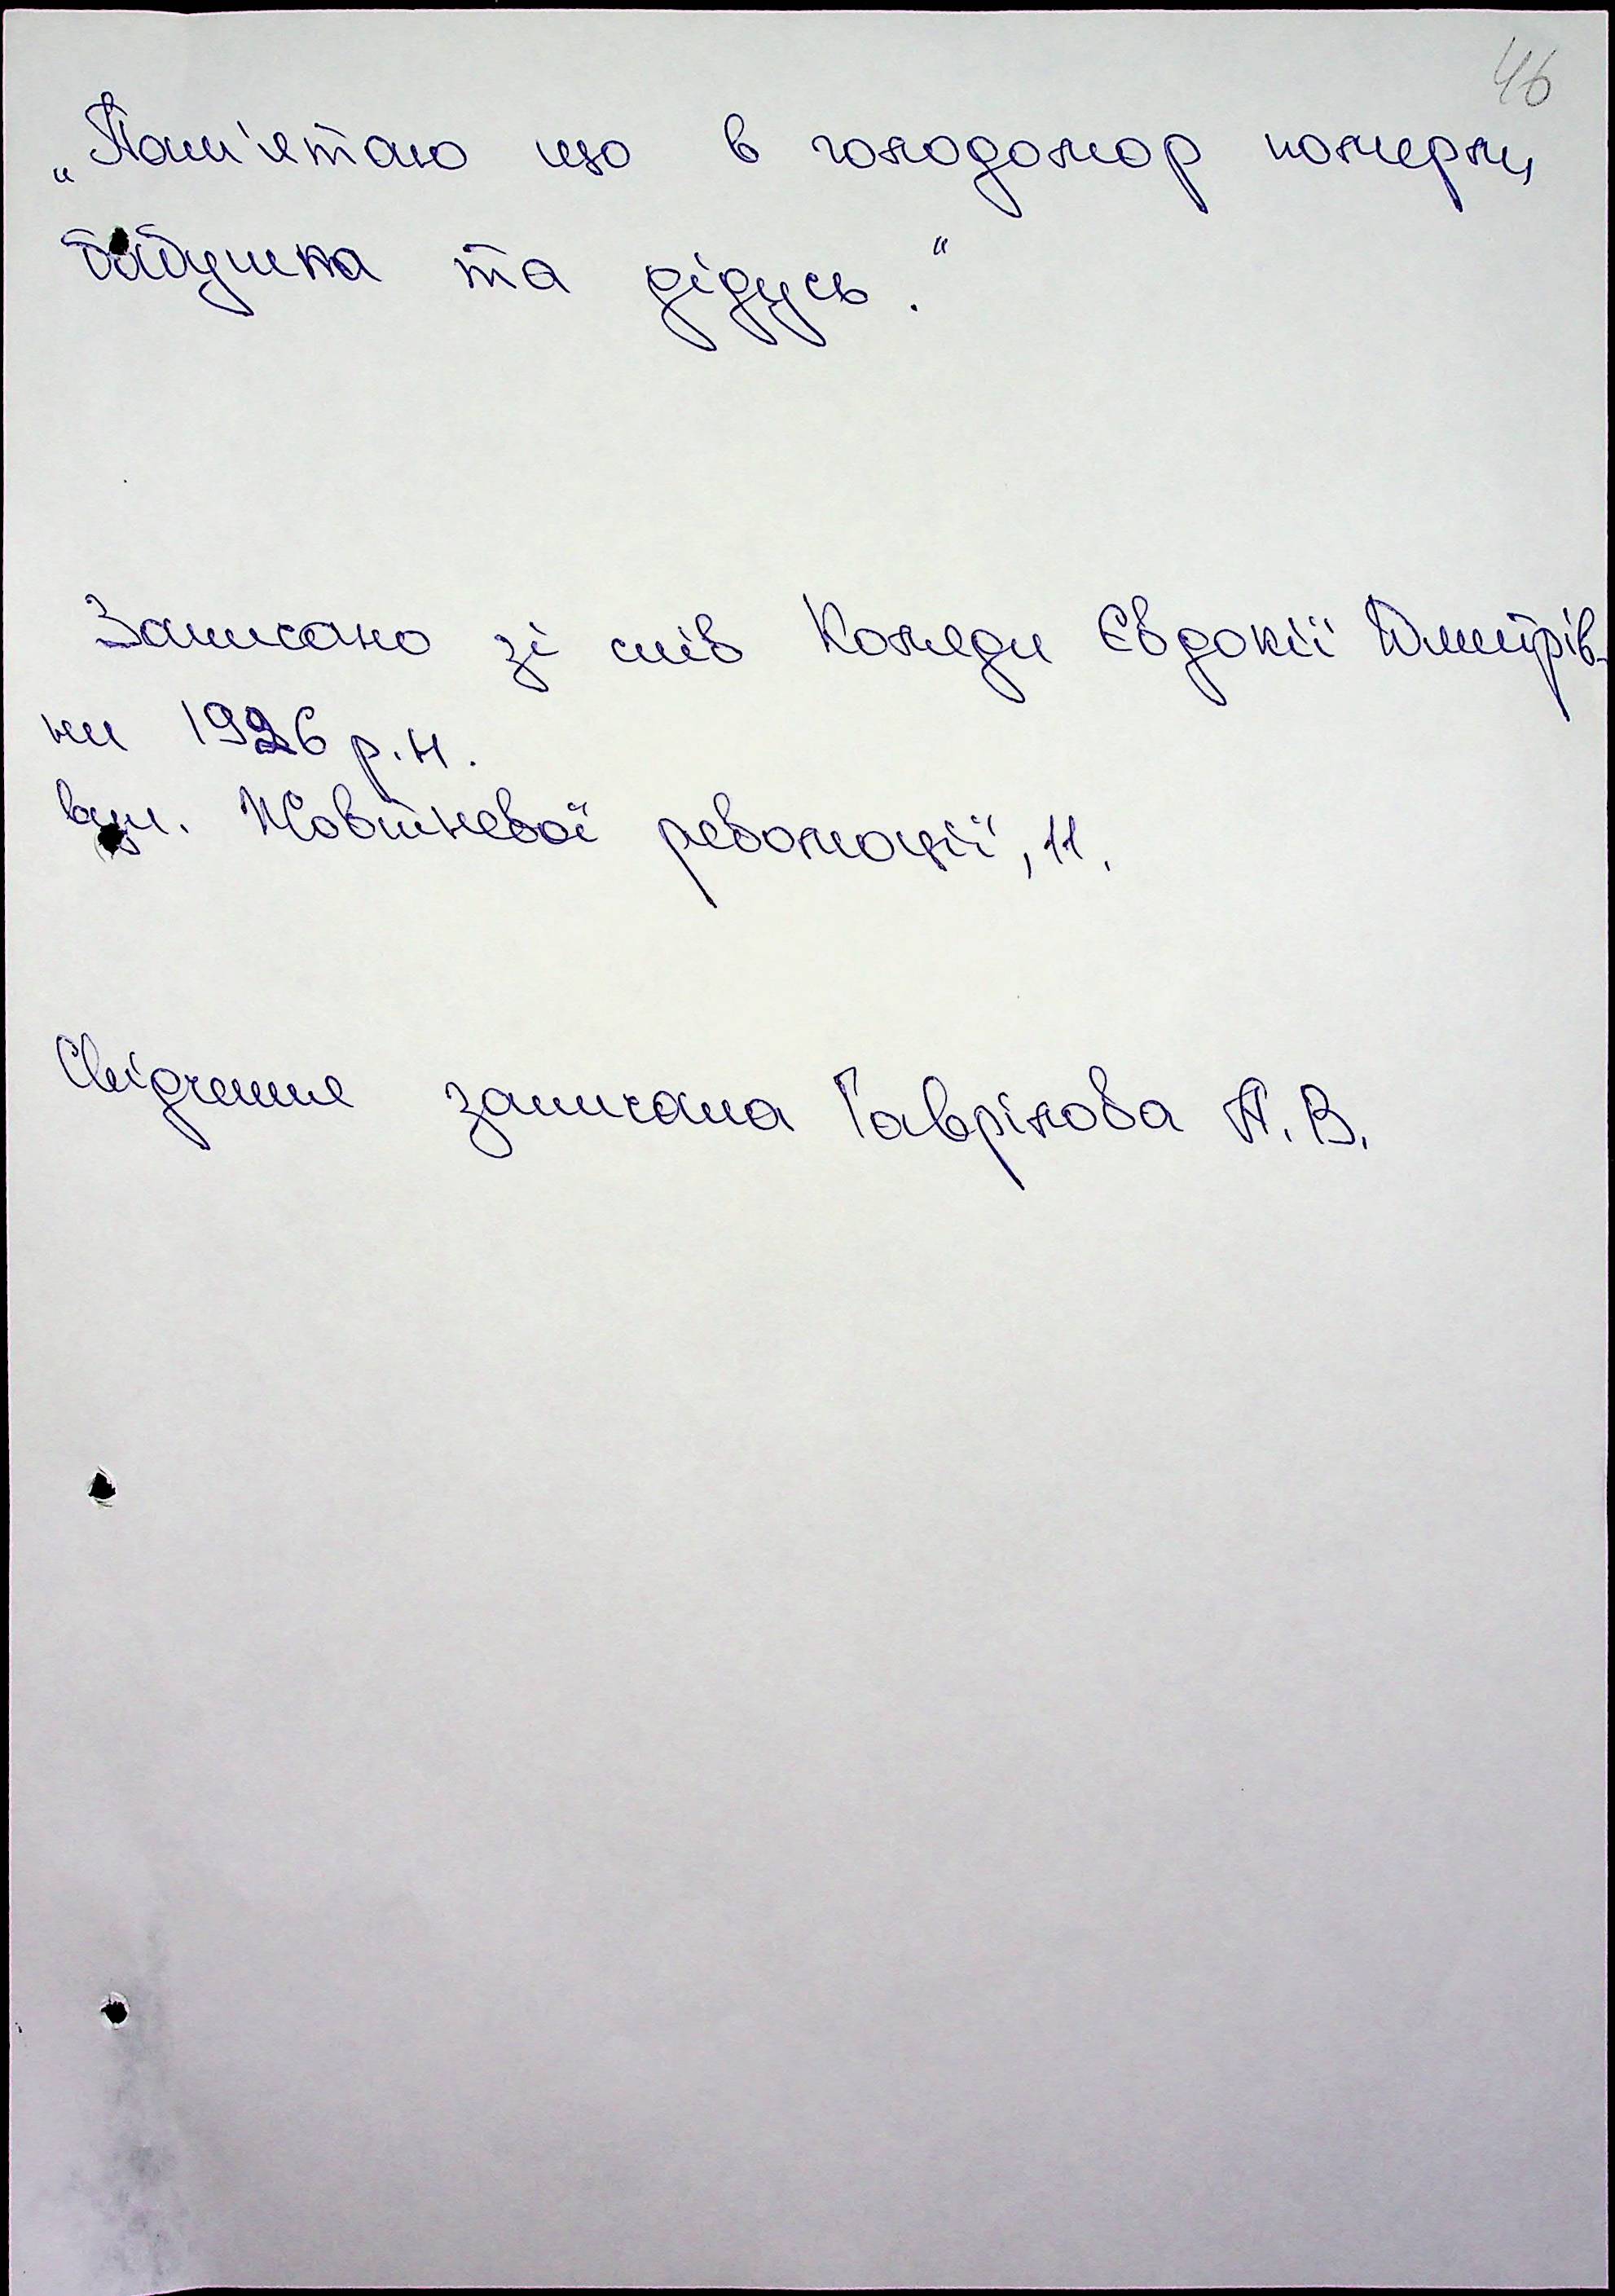 46
„Пам'ятаю що в голодомор померли
бабушка та дідусь."
Записано зі слів Коляди Євдокії Дмитрів-
ни 1926 р.н.
вул. Жовтневої революції, 11.
Свідчення записала Гаврілова А.В.